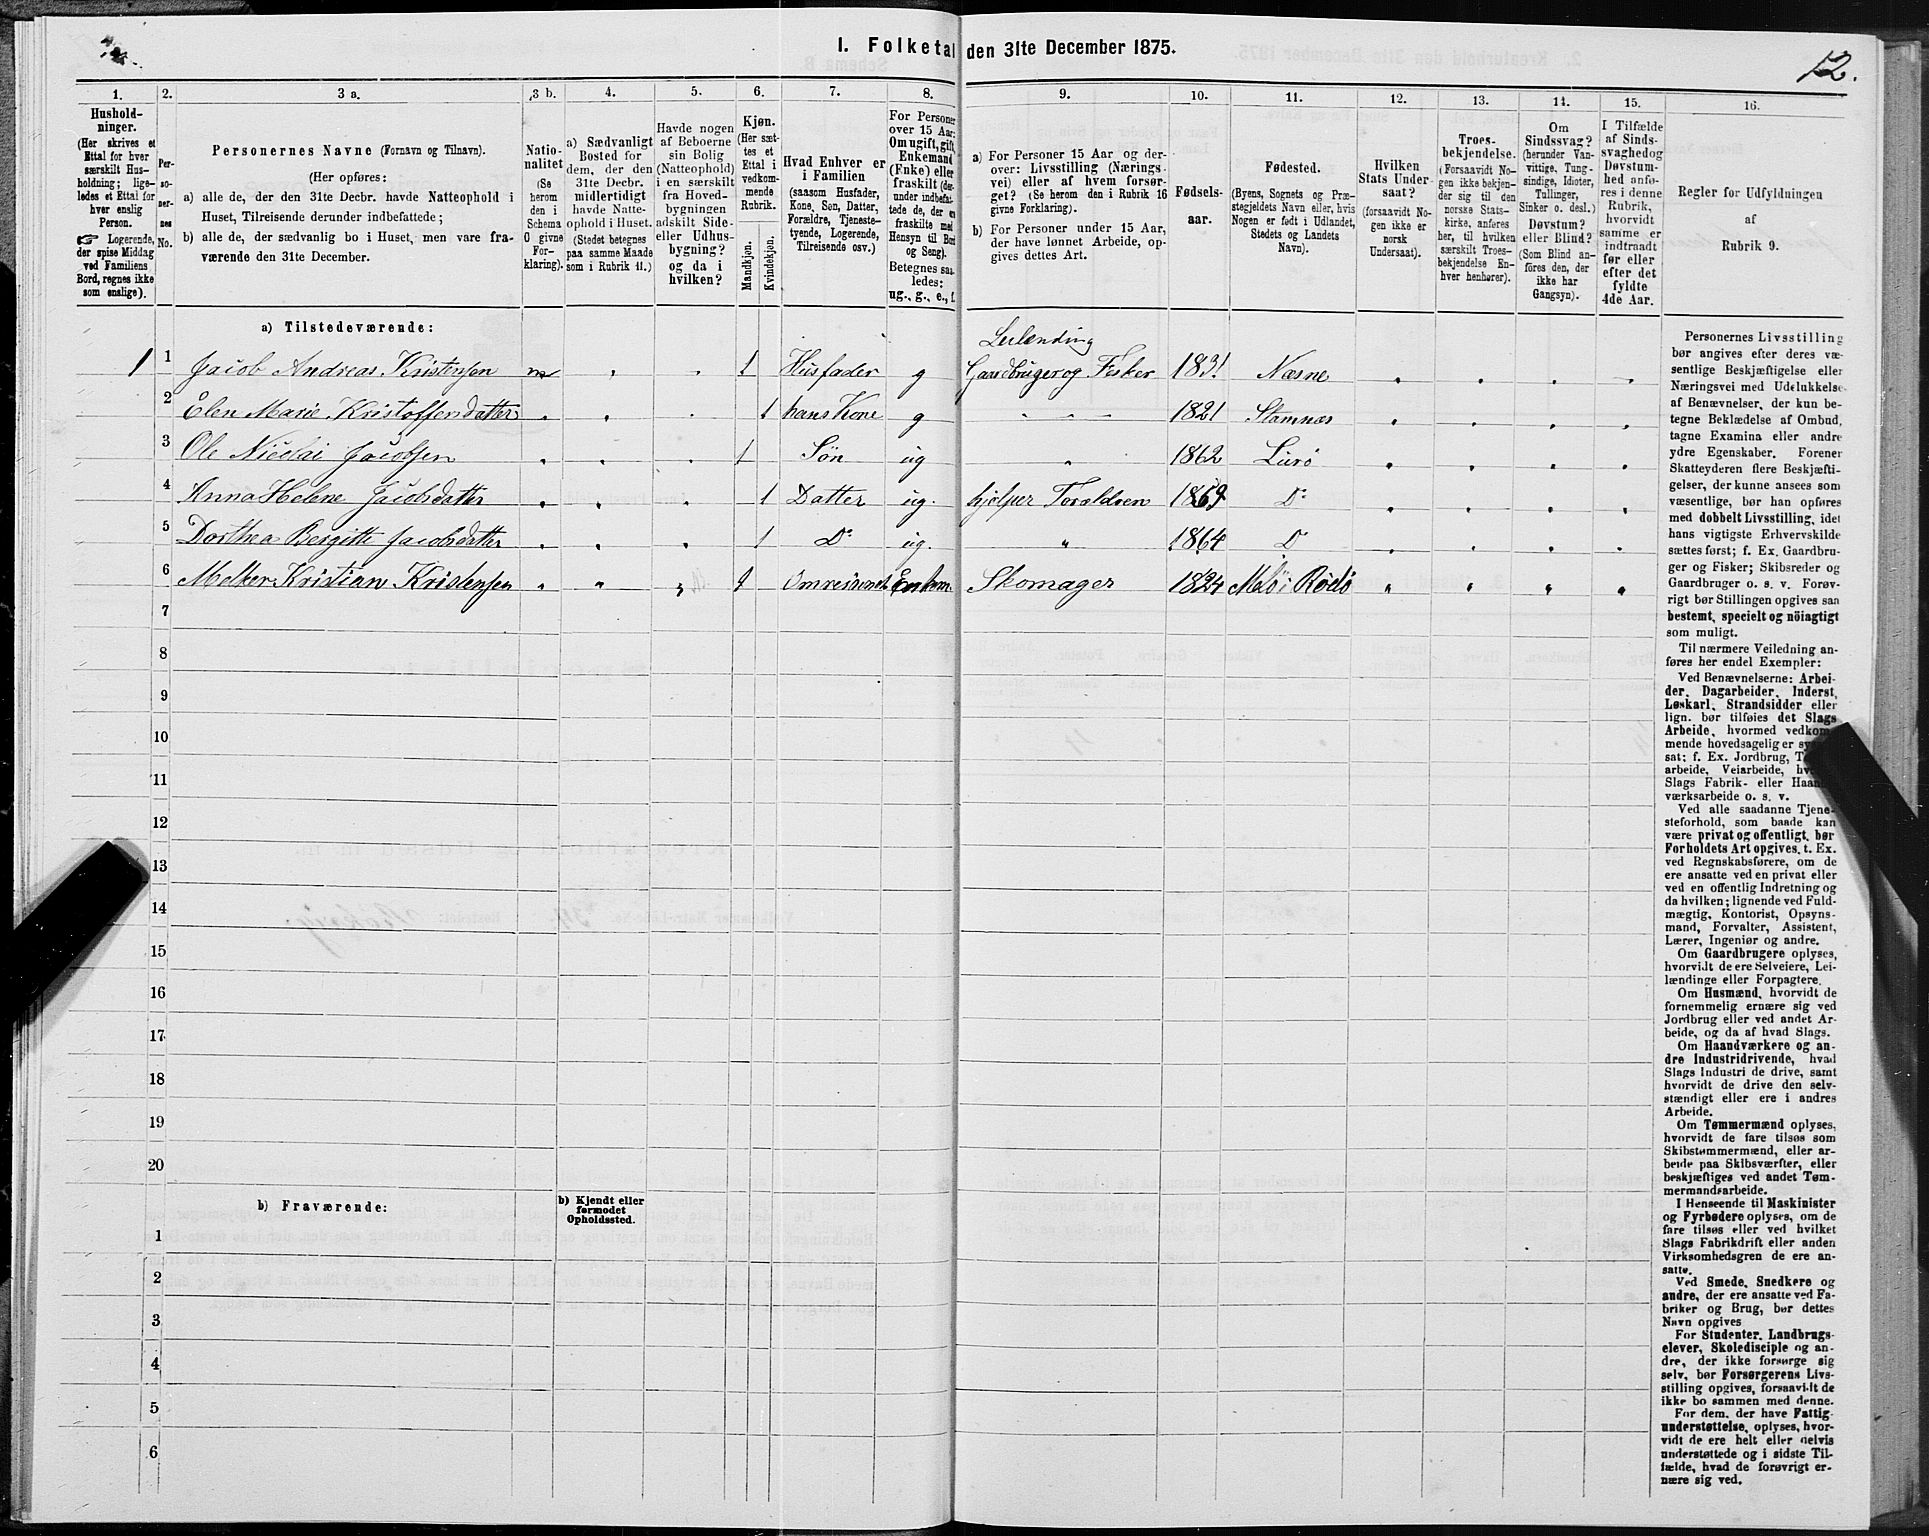 I. Folketal den 31te December 1875.
12.
1. 2. 3 a. 3 b. 4. 5. 6. 7. 8. 9. 10. 11. 12. 13. 14. 15. 16.
Hushold-
ninger.
(Her skrives et
Ettal for hver
særskilt Hus-
holdning; lige-
ledes et Ettal for
hver enslig
Person.
☞ Logerende,
der spise Middag
ved Familiens
Bord, regnes ikke
som enslige).
Per-
so-
ner-
nes
No.
Personernes Navne (Fornavn og Tilnavn).
(Her opføres:
a) alle de, der den 31te Decbr. havde Natteophold i
Huset, Tilreisende derunder indbefattede;
b) alle de, der sædvanlig bo i Huset, men vare fra-
værende den 31te December.
Natio-
nalitet
(Se
herom
den i
Schema
O givne
For-
klaring).
a) Sædvanligt
Bosted for
dem, der den
31te Decbr.
midlertidigt
havde Natte-
ophold i Huset.
(Stedet betegnes
paa samme Maade
som i Rubrik 11.)
Havde nogen
af Beboerne
sin Bolig
(Natteophold)
i en særskilt
fra Hoved-
bygningen
adskilt Side-
eller Udhus-
bygning?
og da i
hvilken?
Kjøn.
(Her sæt-
tes et
Ettal i
vedkom-
mende
Rubrik.
Mandkjøn.
Kvindekjøn.
Hvad Enhver er
i Familien
(saasom Husfader,
Kone, Søn, Datter,
Forældre, Tjeneste-
tyende, Logerende,
Tilreisende osv.)
For Personer
over 15 Aar:
Om ugift, gift,
Enkemand
(Enke) eller
fraskilt (der-
under indbefat-
tede de, der er
fraskilte med
Hensyn til Bord
og Seng).
Betegnes saa-
ledes:
ug., g., e., f.
a) For Personer 15 Aar og der-
over: Livsstilling (Nærings-
vei) eller af hvem forsør-
get? (Se herom den i Rubrik 16
givne Forklaring).
b) For Personer under 15 Aar,
der have lønnet Arbeide, op-
gives dettes Art.
Fødsels-
aar.
Fødested.
(Byens, Sognets og Præ-
stegjeldets Navn eller, hvis
Nogen er født i Udlandet,
Stedets og Landets
Navn).
Hvilken
Stats Under-
saat?
(forsaavidt No-
gen ikke er
norsk
Undersaat).
Troes-
bekjendelse.
(Forsaavidt No-
gen ikke bekjen-
der sig til den
norske Stats-
kirke, anføres
her, til hvilken
særskilt Troes-
bekjendelse En-
hver henhører).
Om
Sindssvag?
(herunder Van-
vittige, Tung-
sindige, Idioter,
Tullinger,
Sinker o. desl.)
Døvstum?
eller Blind?
(Som Blind an-
føres den, der
ikke har
Gangsyn).
I Tilfælde
af Sinds-
svaghed og
Døvstum-
hed anfø-
res i denne
Rubrik,
hvorvidt
samme er
indtraadt
før eller
efter det
fyldte
4de Aar.
Regler for Udfyldningen
af
Rubrik 9.
a) Tilstedeværende:
Leilending
1 1 Jacob Andreas Kristensen n " " 1 Husfader g Gaardbruger og Fisker 1831 Næsne " " " "
2 Elen Marie Kristoffersdatter " " " 1 hans Kone g " " " 1821 Stamnæs " " " "
3 Ole Nicolai Jacobsen " " " 1 Søn ug " 1862 Lurø " " " "
4 Anna Helene Jacobsdatter " " " 1 Datter ug. hjelper Forældren 1869 Do " " " "
5 Dorthea Bergitte Jacobsdatter " " " 1 Do ug. " 1864 Do " " " "
6 Melker Kristian Kristensen " " " 1 Omreisende Enkem Skomager 1824 Melø i Rødø " " " "
7
8
9
10
11
12
13
14
15
16
17
18
19
20
b) Fraværende:
b) Kjendt eller
formodet
Opholdssted.
1
2
3
4
5
6
Personernes Livsstilling
bør angives efter deres væ-
sentlige Beskjæftigelse eller
Næringsvei med Udelukkelse
af Benævnelser, der kun be-
tegne Beklædelse af Ombud,
tagne Examina eller andre
ydre Egenskaber. Forener
Skatteyderen flere Beskjæfti-
gelser, der kunne ansees som
væsentlige, bør han opføres
med dobbelt Livsstilling, idet
hans vigtigste Erhvervskilde
sættes først; f. Ex. Gaardbru-
ger og Fisker; Skibsreder og
Gaardbruger o. s. v. Forøv-
rigt bør Stillingen opgives saa
bestemt, specielt og nöiagtigt
som muligt.
Til nærmere Veiledning an-
føres her endel Exempler:
Ved Benævnelserne: Arbei-
der, Dagarbeider, Inderst,
Løskarl, Strandsidder eller
lign. bør tilføies det Slags
Arbeide, hvormed vedkom-
mende hovedsagelig er
sat; f. Ex. Jordbrug,
arbeide, Veiarbeide,
Slags Fabrik- eller
værksarbeide o. s. v.
Ved alle saadanne Tjene-
steforhold, som baade kan
være privat og offentligt, bør
Forholdets Art opgives, t. Ex.
ved Regnskabsførere, om de
ere ansatte ved en privat eller
ved en offentlig Indretning og
da hvilken; lignende ved Fuld-
mægtig, Kontorist, Opsyns-
mand, Forvalter, Assistent,
Lærer, Ingeniør og andre.
Om Gaardbrugere oplyses,
hvorvidt de ere Selveiere, Lei-
lændinge eller Forpagtere.
Om Husmænd, hvorvidt de
fornemmelig ernære sig ved
Jordbrug eller ved andet Ar-
beide, og da af hvad Slags.
Om Haandværkere og an-
dre Industridrivende, hvad
Slags Industri de drive, samt
hvorvidt de drive den selv-
stændigt eller ere i andres
Arbeide.
Om Tømmermænd oplyses,
hvorvidt de fare tilsøs som
Skibstømmermænd, eller ar-
beide paa Skibsværfter, eller
beskjæftiges ved andet Tøm-
mermandsarbeide.
I Henseende til Maskinister
og Fyrbødere oplyses, om de
fare tilsøs eller ved hvilket
Slags Fabrikdrift eller anden
Virksomhedsgren de ere an-
satte.
Ved Smede, Snedkere og
andre, der ere ansatte ved Fa-
briker og Brug, bør dettes
Navn opgives
For Studenter, Landbrugs-
elever, Skoledisciple og an-
dre, der ikke forsørge sig
selv, bør Forsørgerens Livs-
stilling opgives, forsaavidt de
ikke bo sammen med denne.
For dem, der have Fattig-
understøttelse, oplyses, hvor-
vidt de ere helt eller delvis
understøttede og i sidste Til-
fælde, hvad de forøvrigt er-
nære sig ved.